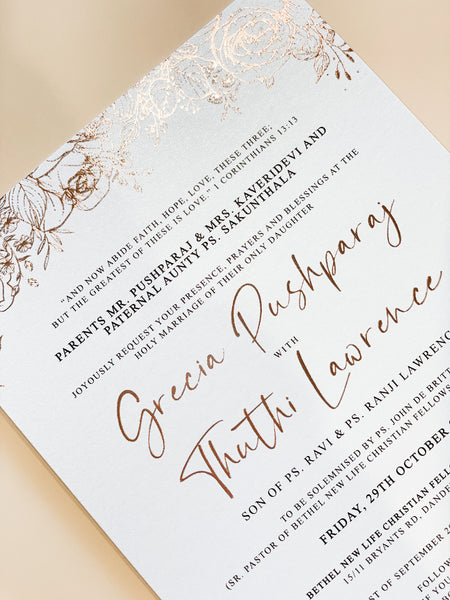 "AND NOW ABIDE FAITH, HOPE, LOVE, THESE THREE;
BUT THE GREATEST OF THESE IS LOVE." 1 CORINTHIANS 13:13
PARENTS MR. PUSHPARAJ & MRS. KAVERIDEVI AND
PATERNAL AUNTY PS. SAKUNTHALA
JOYOUSLY REQUEST YOUR PRESENCE, PRAYERS AND BLESSINGS AT THE
HOLY MARRIAGE OF THEIR ONLY DAUGHTER
Grecia Pushparaj
WITH
Thuthi Lawrence
SON OF PS. RAVI & PS. RANJI LAWRENC
TO BE SOLEMNISED BY PS. JOHN DE BRITT
(SR. PASTOR OF BETHEL NEW LIFE CHRISTIAN FELLOWS
FRIDAY, 29TH OCTOBER 2
BETHEL NEW LIFE CHRISTIAN FELL
15/11 BRYANTS RD, DANDE
EST OF SEPTEMBER 2
FOLLOW
FOLL